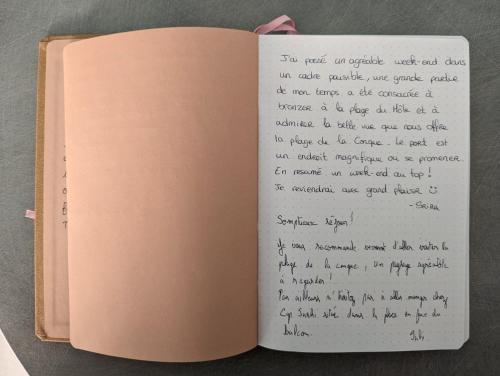 J'ai passé un agréable week-end dans
un cadre paisible, une grande partie
de mon temps a été consacrée à
bronzer à la plage du Môle et à
admirer la belle vue que nous offre
la plage de la Conque. Le port est
un endroit magnifique ou se promener.
En resumé un week-end au top !
Je reviendrai avec grand plaisir ☺
Somptueux séjour !
Je vous recommande vraiment d'aller visiter la
plage de la conque, un paysage agréable
à regarder !
Par ailleurs n'hésitez pas à aller manger chez
Cap Sushi situé dans la place en face du
balcon.